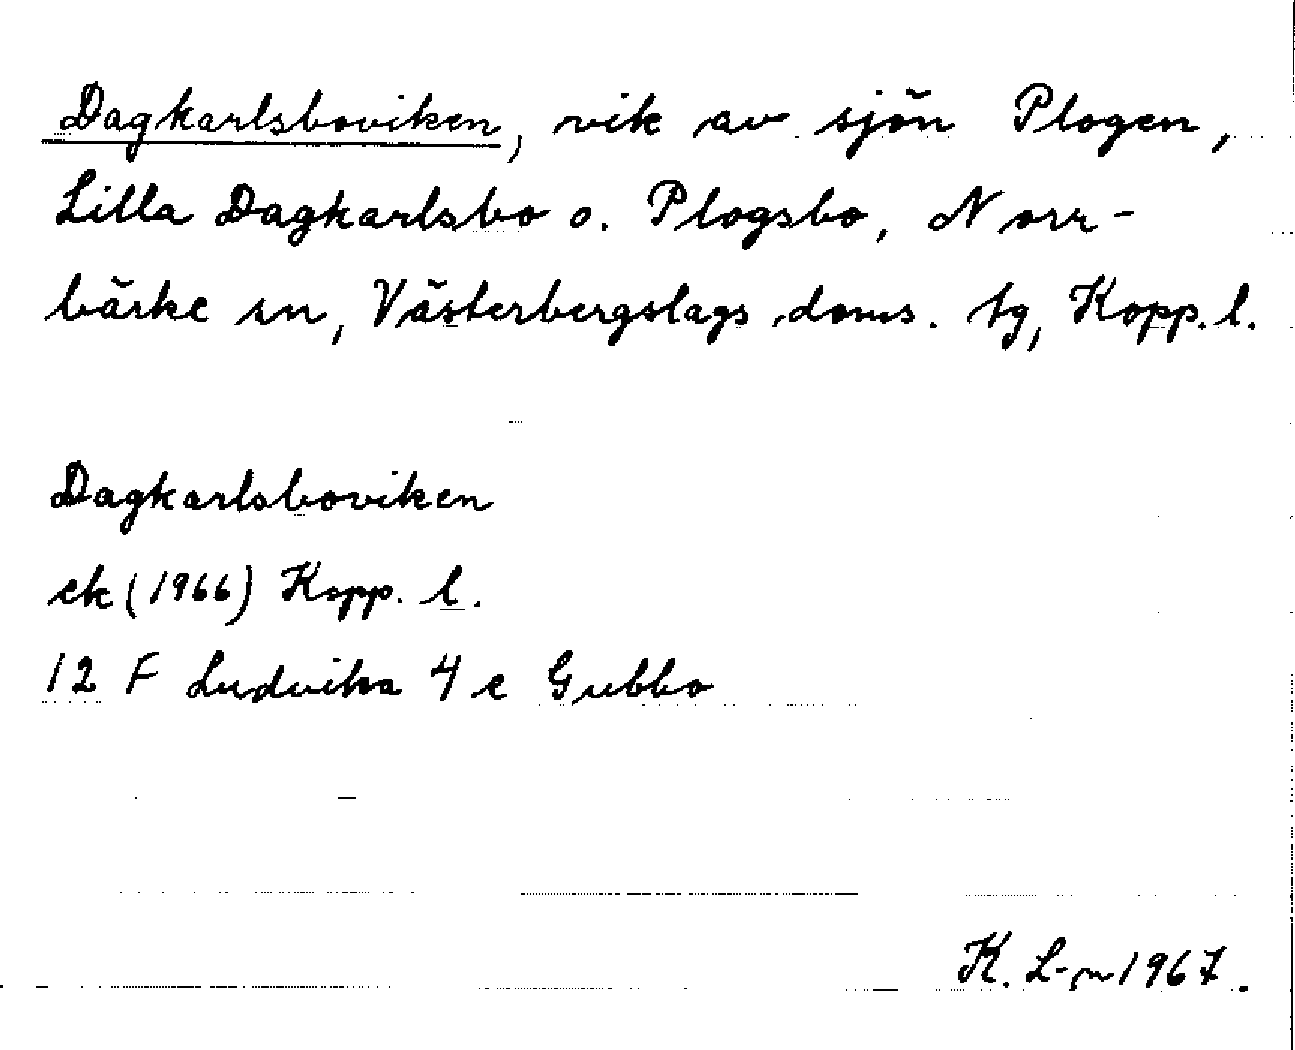 Dagkarlsboviken, vik av sjön Plogen,
Lilla Dagkarlsbo o. Plogsbo, Norr-
bärke sn, Västerbergslags doms. tg, Kopp. l.
Dagkarlsboviken
ek (1966) Kopp. l.
12 F Ludvika 4 e Gubbo
K. L-n 1967.